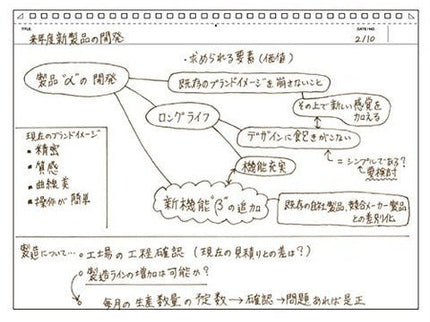 TITLE
来年度新製品の開発
DATE・NO.
2/10
・求められる要素(価値)
製品"α"の開発
既存のブランドイメージを崩さないこと
その上で新しい感覚を
加える
ロングライフ
デザインに飽きがこない
=シンプルである?
要検討
機能充実
現在のブランドイメージ
・精密
・質感
・曲線美
・操作が簡単
新機能"β"の追加
既存の自社製品、競合メーカー製品
との差別化
製造について…・工場の工程確認(現在の見積りとの差は?)
製造ラインの増加は可能か?
毎月の生産数量の予定数→確認→問題あれば是正